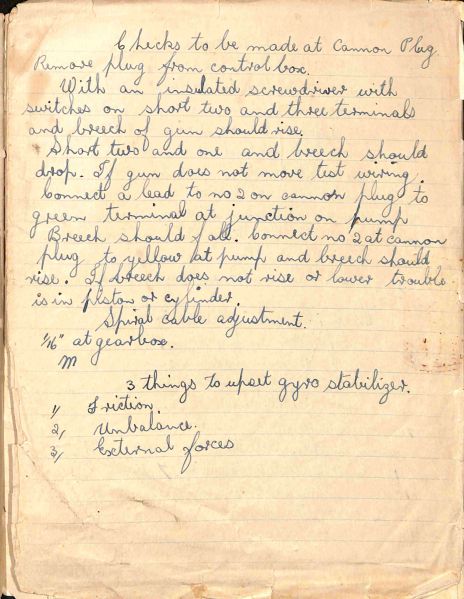 Checks to be made at Cannon Plug
Remove plug from control box.
With an insulated screwdriver with
switches on short two and three terminals
and breech of gun should rise.
Short two and one and breech should
drop. If gun does not move test wiring.
Connect a lead to no 2 on cannon plug to
green terminal at junction on pump
Breech should fall. Connect no 2 at cannon
plug to yellow at pump and breech should
rise. If breech does not rise or lower trouble
is in piston or cylinder.
Spiral cable adjustment.
1/16" at gearbox.
M
3 things to upset gyro stabilizer.
1, Friction.
2, Unbalance.
3, External forces